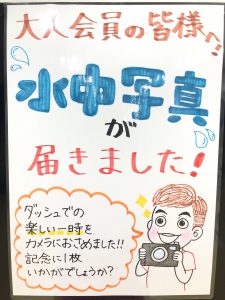 大人会員の皆様へ!
水中写真
が
届きました!
ダッシュでの
楽しい一時を
カメラにおさめました!!
記念に1枚
いかがでしょうか?